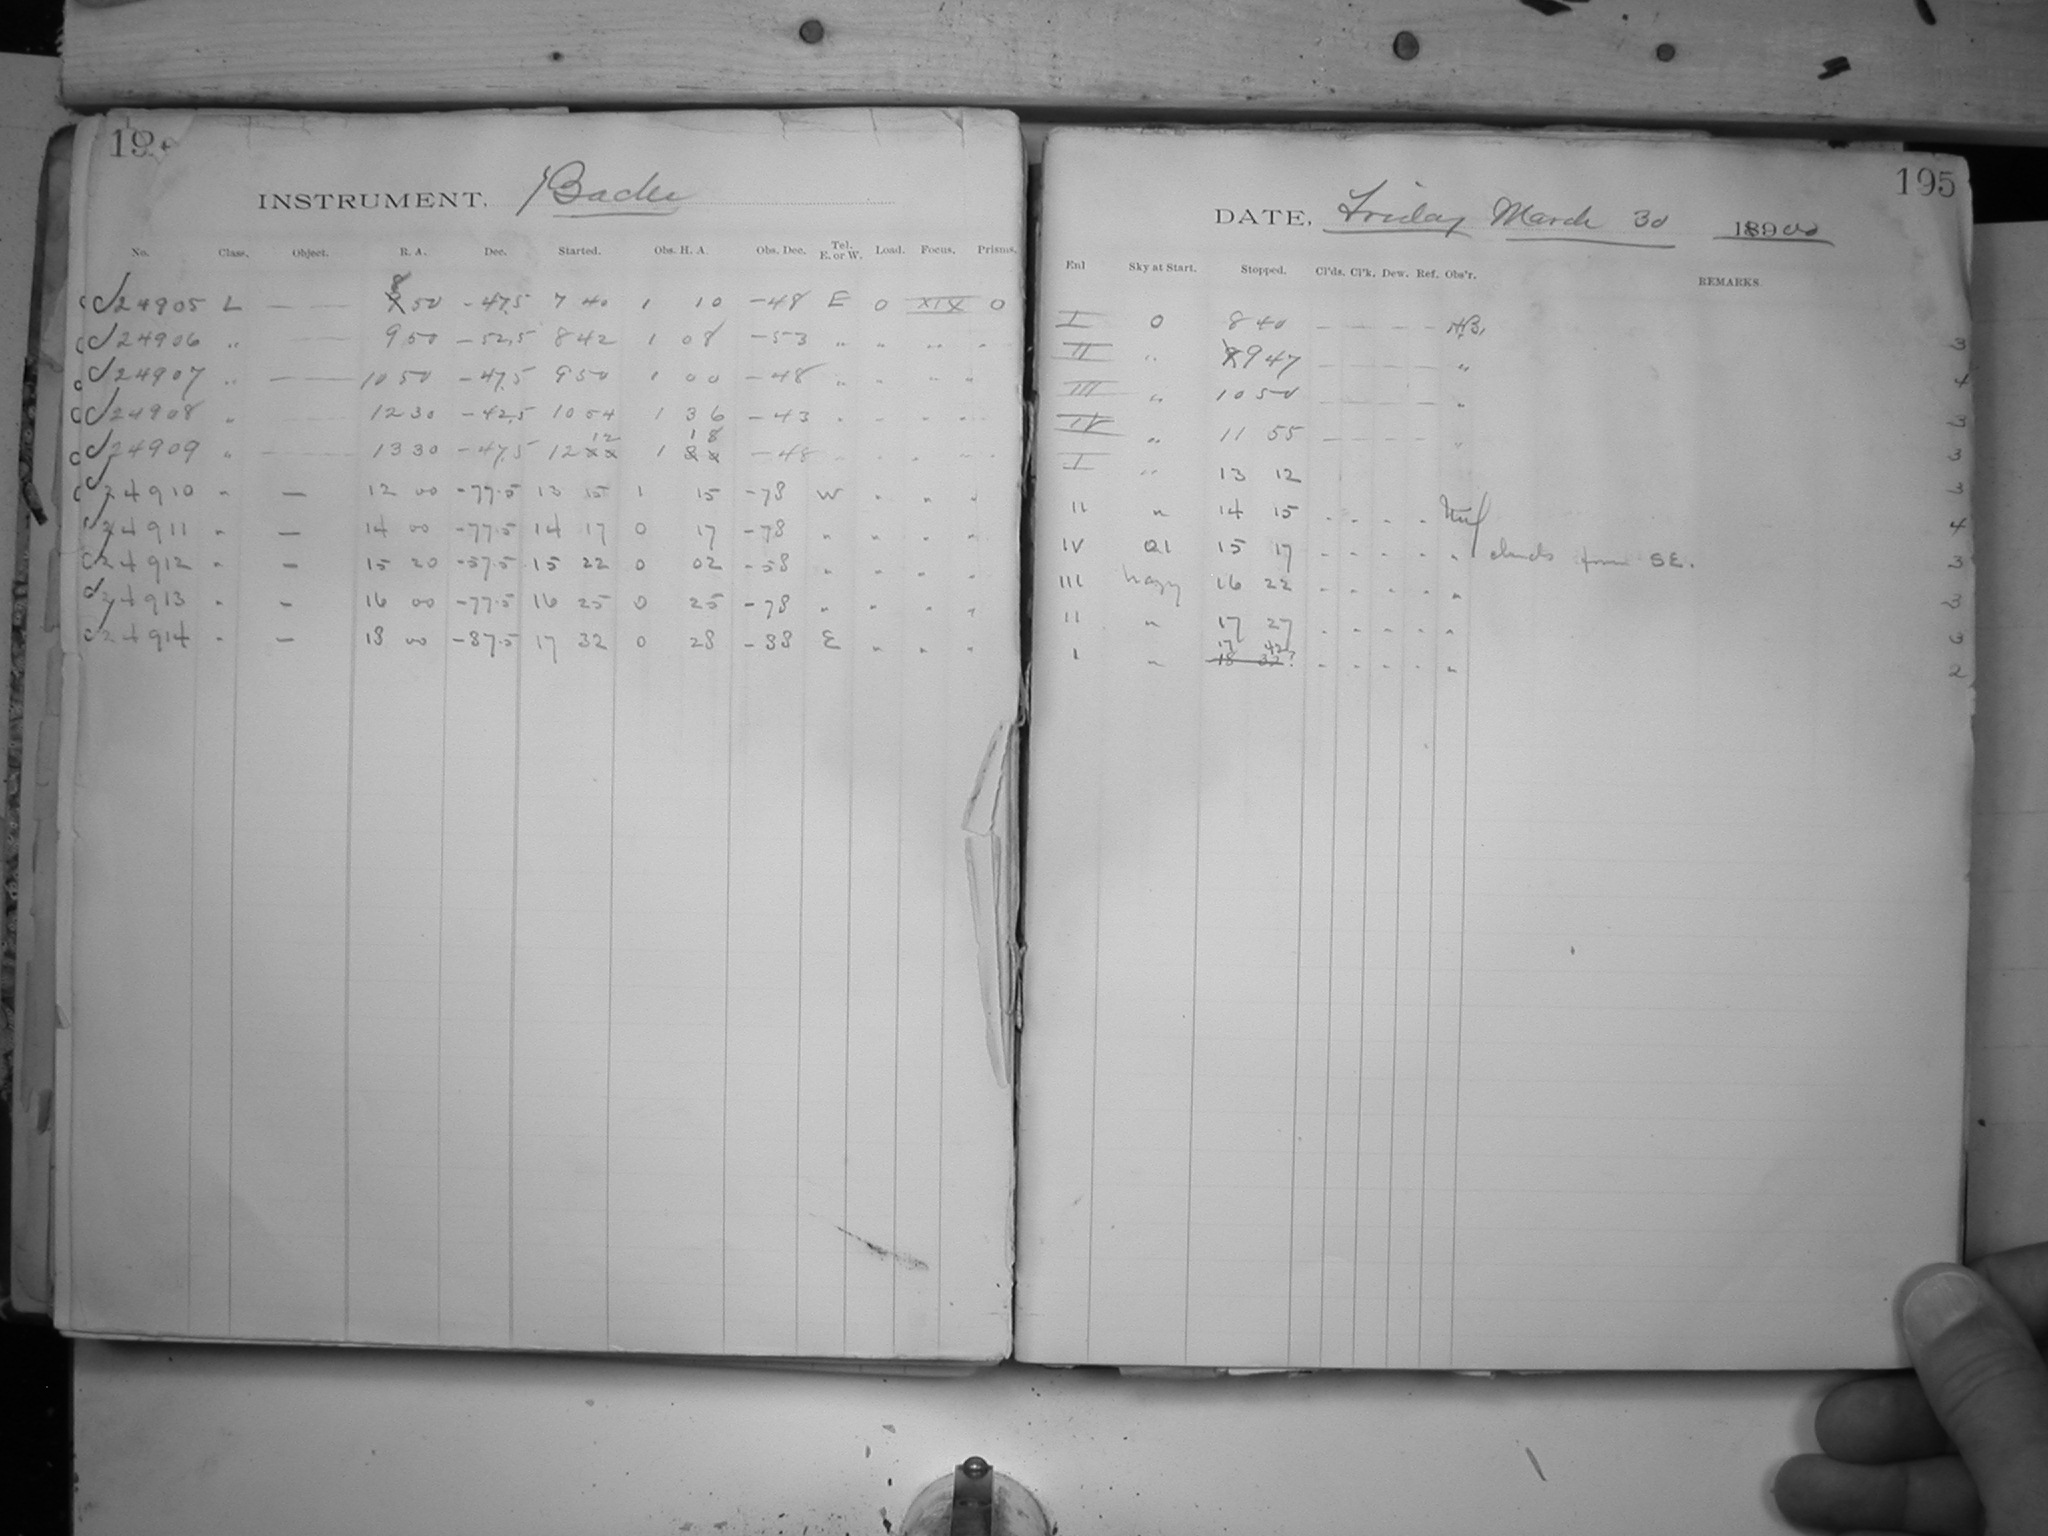 19
INSTRUMENT. Bache
No. Class. Object. R. A. Dec. Started. Obs. H. A. Obs. Dec. Tel. E. or W. Load. Focus. Prisms.
24905 L — — 8 50 -47.5 7 40 1 10 -48 E 0 XIX 0
24906 " — 9 50 -52.5 8 42 1 08 -53 " " " "
24907 " — — 10 50 -47.5 9 50 1 00 -48 " " " "
24908 " — 12 30 -42.5 10 54 1 36 -43 " " " "
24909 " — — 13 30 -47.5 12 12 1 18 -48 " " " "
24910 " — 12 00 -77.5 13 15 1 15 -78 W " " "
24911 " — 14 00 -77.5 14 17 0 17 -78 " " " "
24912 " — 15 20 -57.5 15 22 0 02 -58 " " " "
24913 " — 16 00 -77.5 16 25 0 25 -78 " " " "
24914 " — 18 00 -87.5 17 32 0 28 -88 E " " "
195
DATE. Friday March 30 1900
Enl Sky at Start. Stopped. Cl'ds. Cl'k. Dew. Ref. Obs'r. REMARKS.
I 0 8 40 — — — —
II " 9 47 — — — — " 3
III " 10 50 — — — — " 4
IV " 11 55 — — — — " 3
I " 13 12 3
II " 14 15 - - - - 3
IV 15 17 - - - - " clouds from SE. 4
III hazy 16 22 - - - - " 3
II " 17 27 - - - - " 3
I " 17 42? - - - - " 3
2